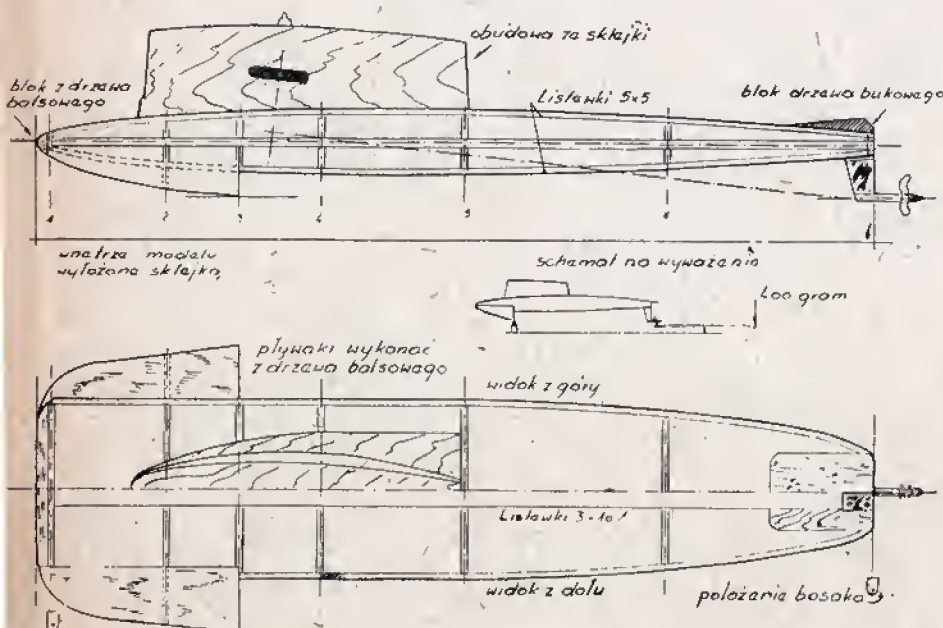 obudowa ze sklejki
blok z drzewa
balsowego
Listewki 5x5
blok drzewa bukowego
1
2
3
4
5
6
wnętrze modelu
wyłożone sklejką
schemat na wyważenie
100 gram
pływaki wykonać
z drzewa balsowego
widok z góry
Listewki 3×10
widok z dołu
położenie bosaka